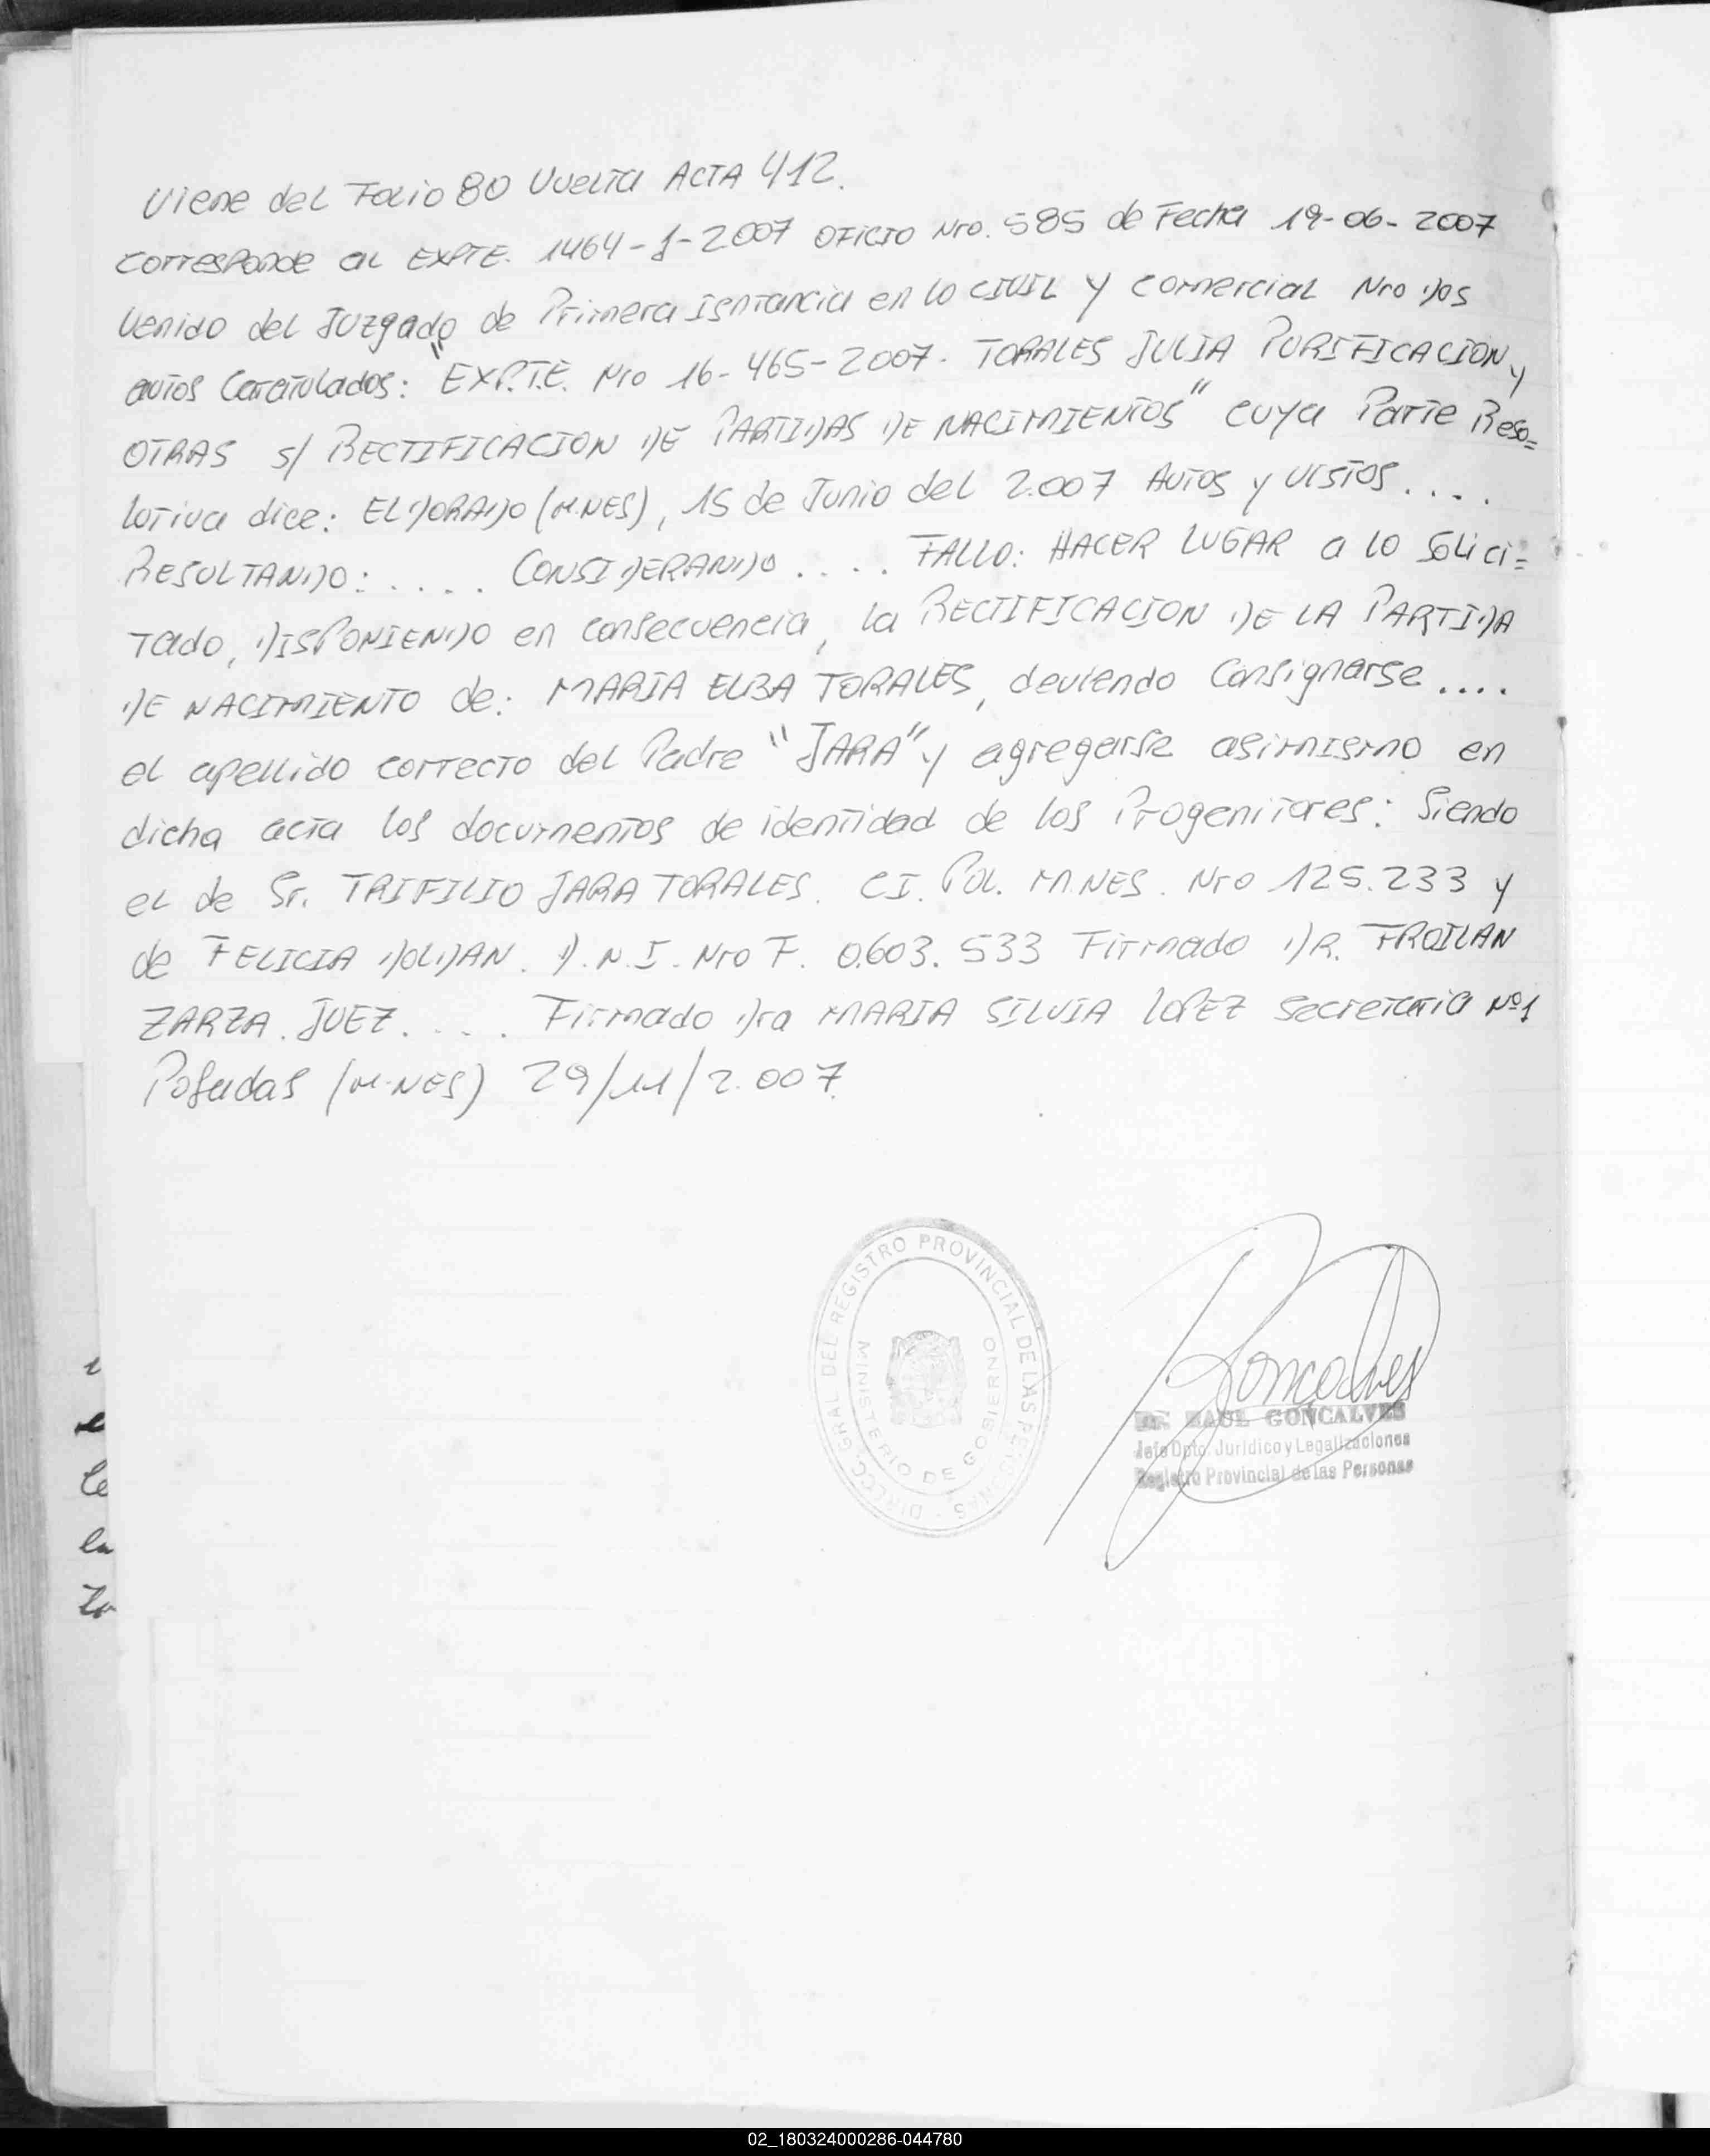 Viene del Folio 80 Vuelta ACTA 412.
corresponde al EXPTE. 1464-J-2007 OFICIO Nro. 585 de Fecha 19-06-2007
Venido del Juzgado de Primera Isntancia en lo CIVIL y comercial Nro Dos
autos Caratulados: "EXP.T.E. Nro 16-465-2007. TORALES JULIA PURIFICACION y
OTRAS s/ RECTIFICACION DE PARTIDAS DE NACIMIENTOS" cuya Parte Reso=
lutiva dice: ELDORADO (M.NES), 15 de Junio del 2.007 Autos y VISTOS....
RESULTANDO:..... CONSIDERANDO..... FALLO: HACER LUGAR a lo Solici=
tado, DISPONIENDO en consecuencia, la RECTIFICACION DE LA PARTIDA
DE NACIMIENTO de: MARIA ELBA TORALES, deviendo Consignarse....
el apellido correcto del Padre "JARA" y agregarse asimismo en
dicha acta los documentos de identidad de los Progenitores: Siendo
el de Sr. TRIFILIO JARA TORALES. CI. Pol. M.NES. Nro 125.233 y
de FELICIA DOLDAN. D.N.I. Nro F. 0.603.533 Firmado DR. FROILAN
ZARZA. JUEZ..... Firmado Dra MARIA SILVIA LOPEZ Secretaria Nº1
Posadas (M.NES) 29/11/2.007.
DIRECC. GRAL DEL REGISTRO PROVINCIAL DE LAS PERSONAS
MINISTERIO DE GOBIERNO
Goncalves
DR. RAUL GONCALVES
Jefe Dpto. Jurídico y Legalizaciones
Registro Provincial de las Personas
le
en
02_180324000286-044780